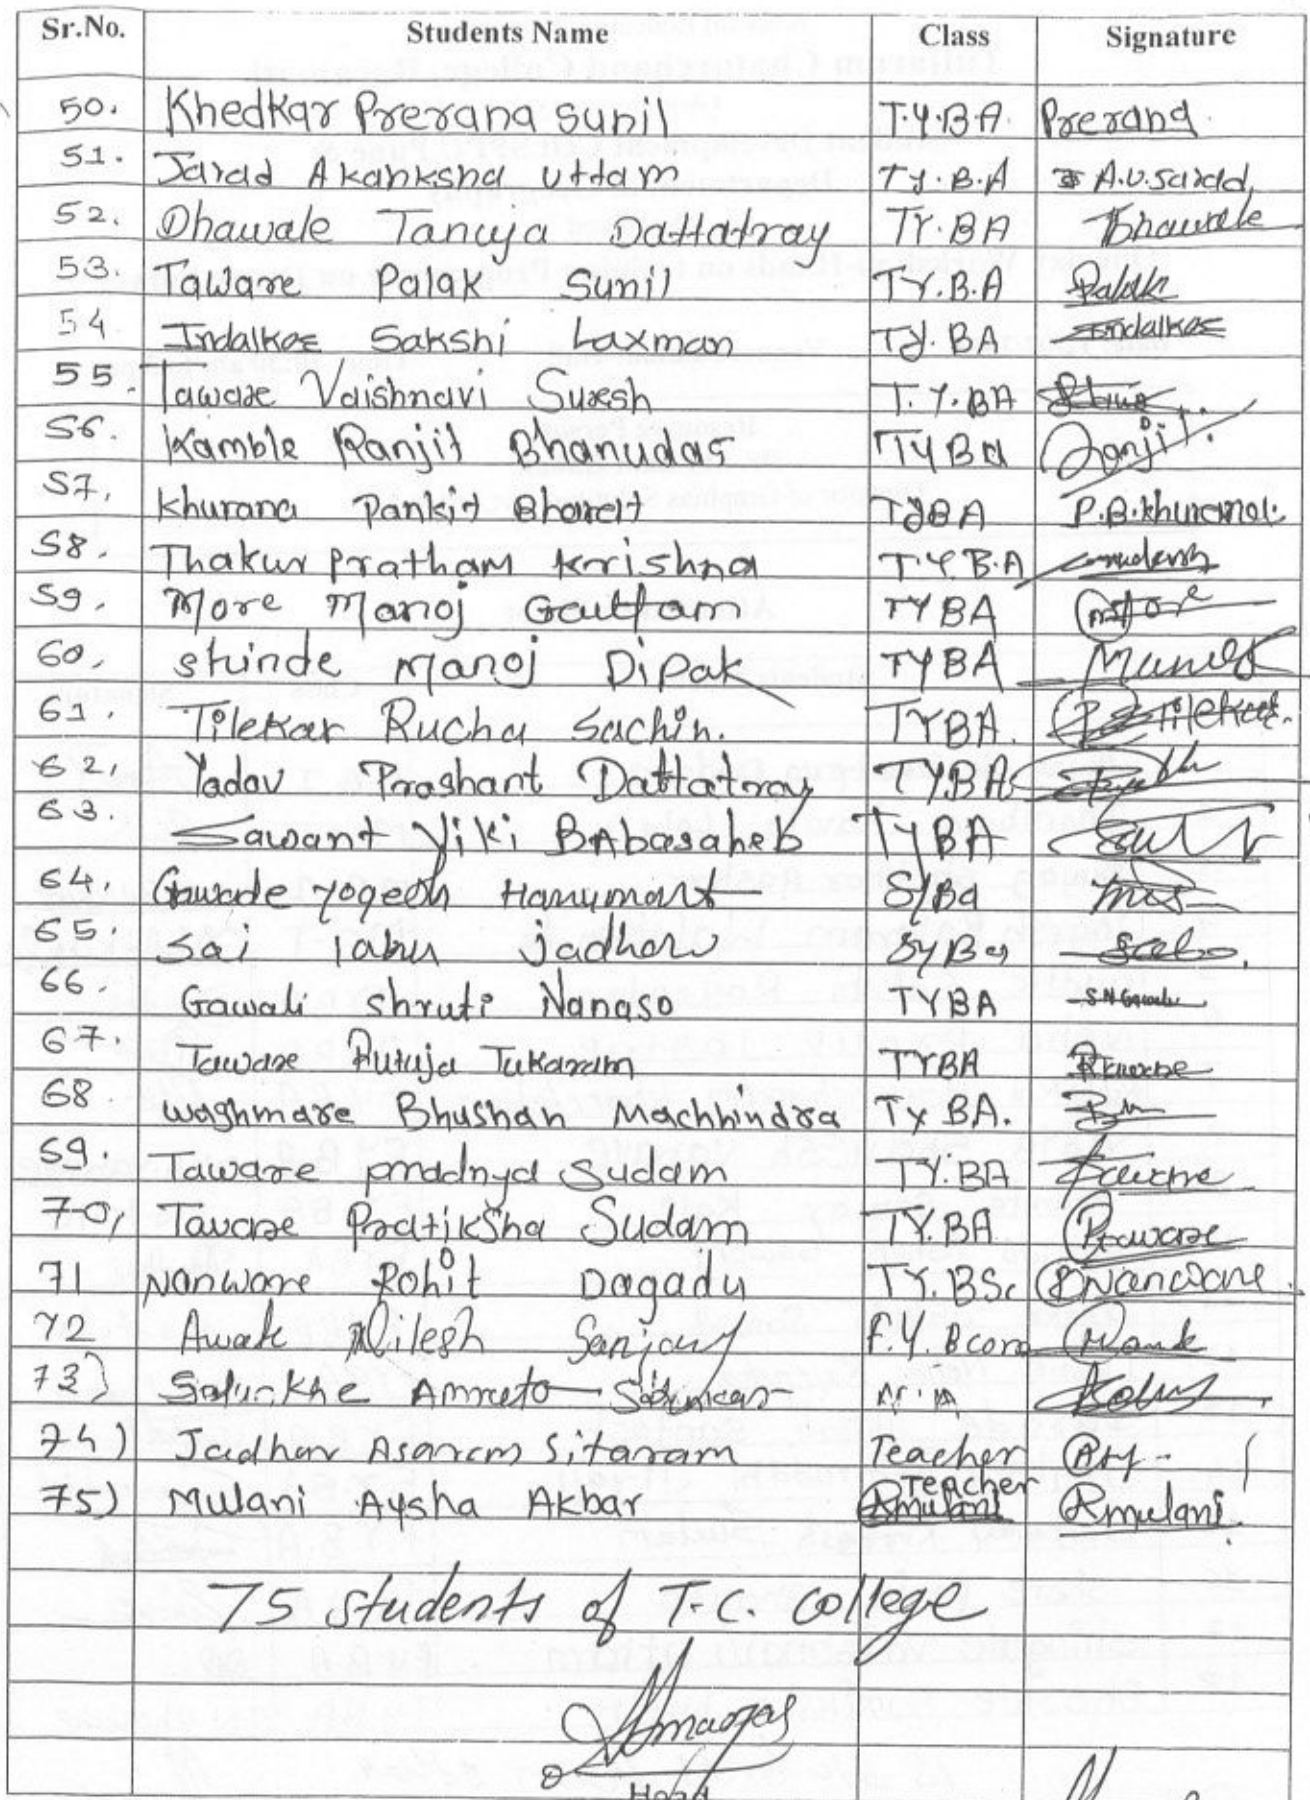 Sr.No. Students Name Class Signature
50. Khedkar Prerana Sunil T.Y.BA. Prerana.
51. Jarad Akanksha Uttam T.Y.B.A A.U.Jarad
52. Dhawale Tanuja Dattatray TY.BA Dhawale
53. Taware Palak Sunil TY.B.A Palak
54 Indalkar Sakshi Laxman TY.BA Indalkar
55. Taware Vaishnavi Suresh T.Y.BA
56. Kamble Ranjit Bhanudas TYBA Ranjit.
57. Khurana Pankit Bharat TYBA P.B.Khurana.
58. Thakur Pratham Krishna T.Y.B.A
59. More Manoj Gautham TYBA More
60. Shinde Manoj Dipak TYBA
61. Tilekar Rucha Sachin. TYBA. Tilekar.
62. Yadav Prashant Dattatray TY.BA
63. Sawant Viki BAbasaheb TYBA
64. Gawade Yogesh Hanumant SYBa
65. Sai Tabu jadhav SYBa
66. Gawali shruti Nanaso TYBA S.N.Gawali
67. Taware Rutuja Tukaram TYBA RTaware
68 Waghmare Bhushan Machhindra TY BA.
69. Taware pradnya Sudam TY.BA Taware
70, Taware Pratiksha Sudam TY.BA PTaware
71 Nanware Rohit Dagadu TY.BSc RNanware.
72 Awale Nilesh Sanjay F.Y.Bcom
73) Salunkhe Amruta M.A
74) Jadhav Asaram Sitaram Teacher
75) Mulani Aysha Akbar Teacher Amulani Amulani.
75 Students of T.C. College
Head